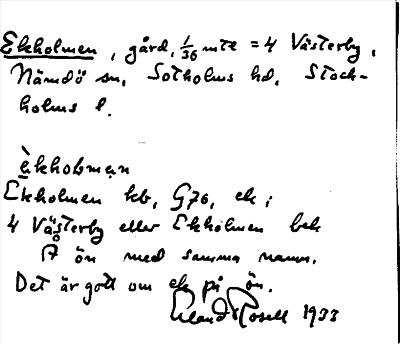 Ekholmen, gård, 1/36 mtl = 4 Västerby,
Nämdö sn, Sotholms hd, Stock-
holms l.
èkholmən
Ekholmen kb, G76, ek;
4 Västerby eller Ekholmen bek
På ön med samma namn.
Det är gott om ek på ön.
Erland Rosell 1933